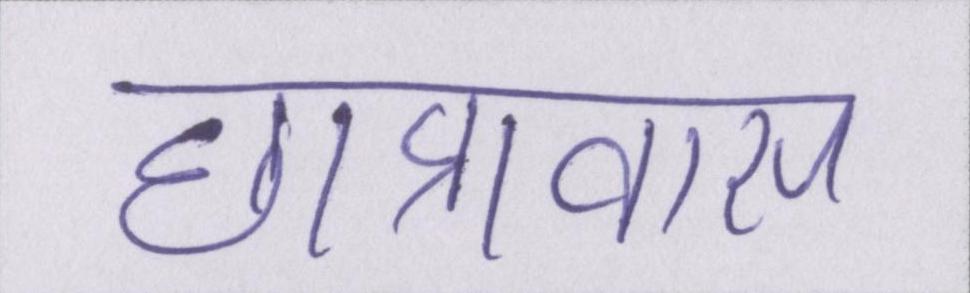 छात्रावास